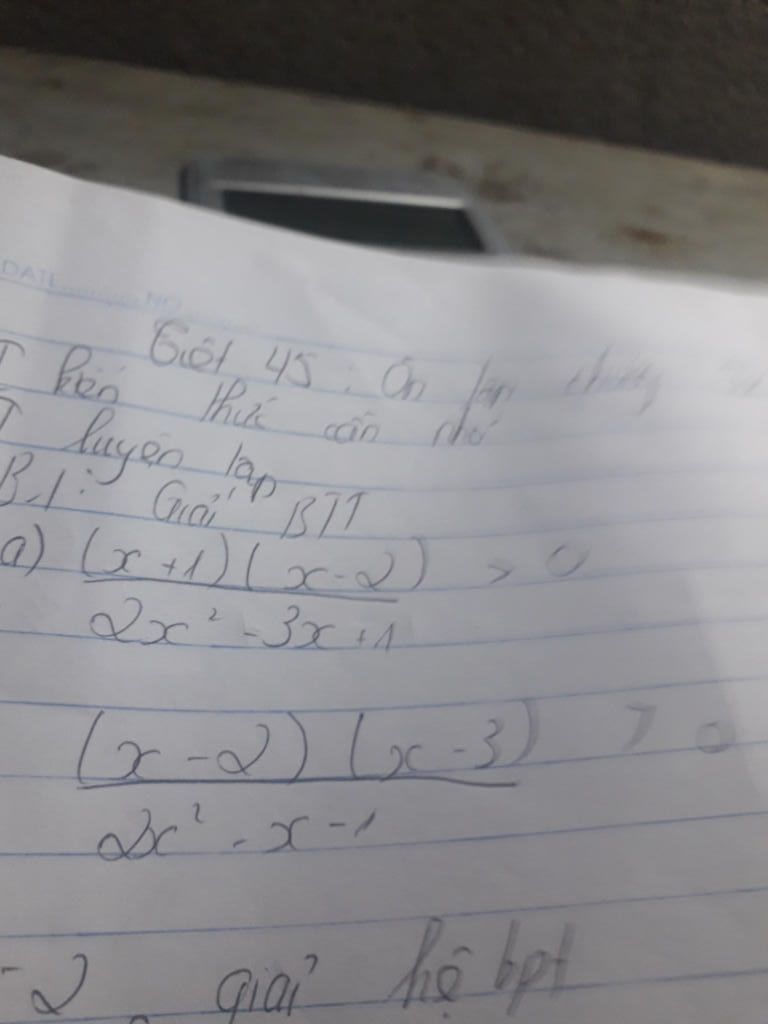 DATE NO
Tiết 45: Ôn
kiến thức cần nhớ
luyện tập
B.1: Giải BPT
a) (x+1)(x-2) > 0
2x² - 3x + 1
(x-2)(x-3) > 0
2x² - x - 1
-2 giải hệ bpt